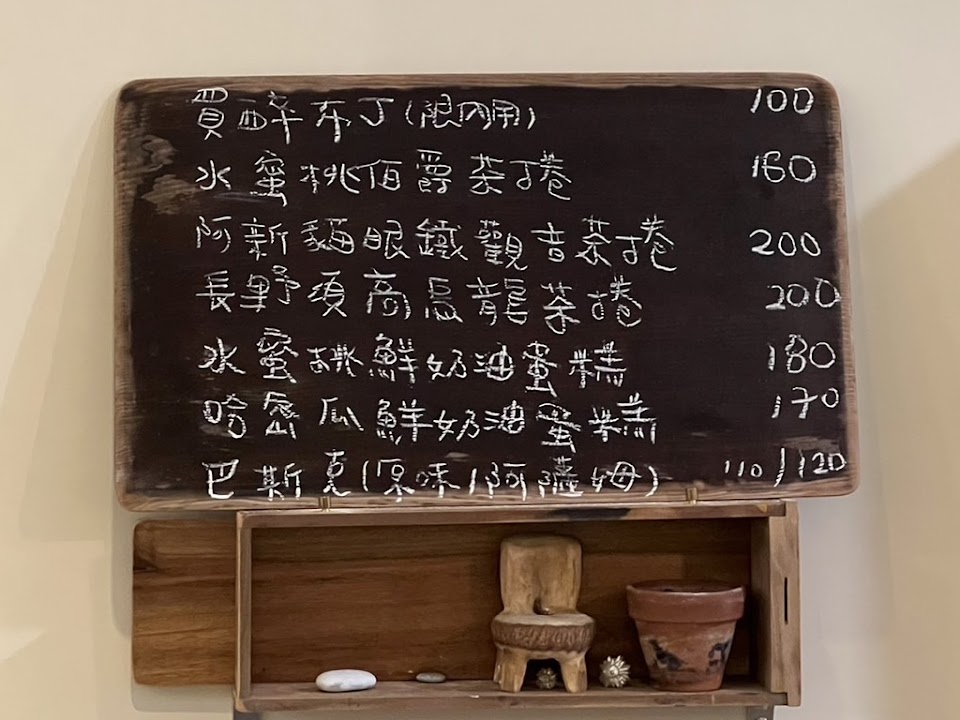 買醉布丁(限內用) 100
水蜜桃伯爵茶捲 180
阿新貓眼鐵觀音茶捲 200
長野項高烏龍茶捲 200
水蜜桃鮮奶油蛋糕 180
哈密瓜鮮奶油蛋糕 170
巴斯克(原味/阿薩姆) 110/120